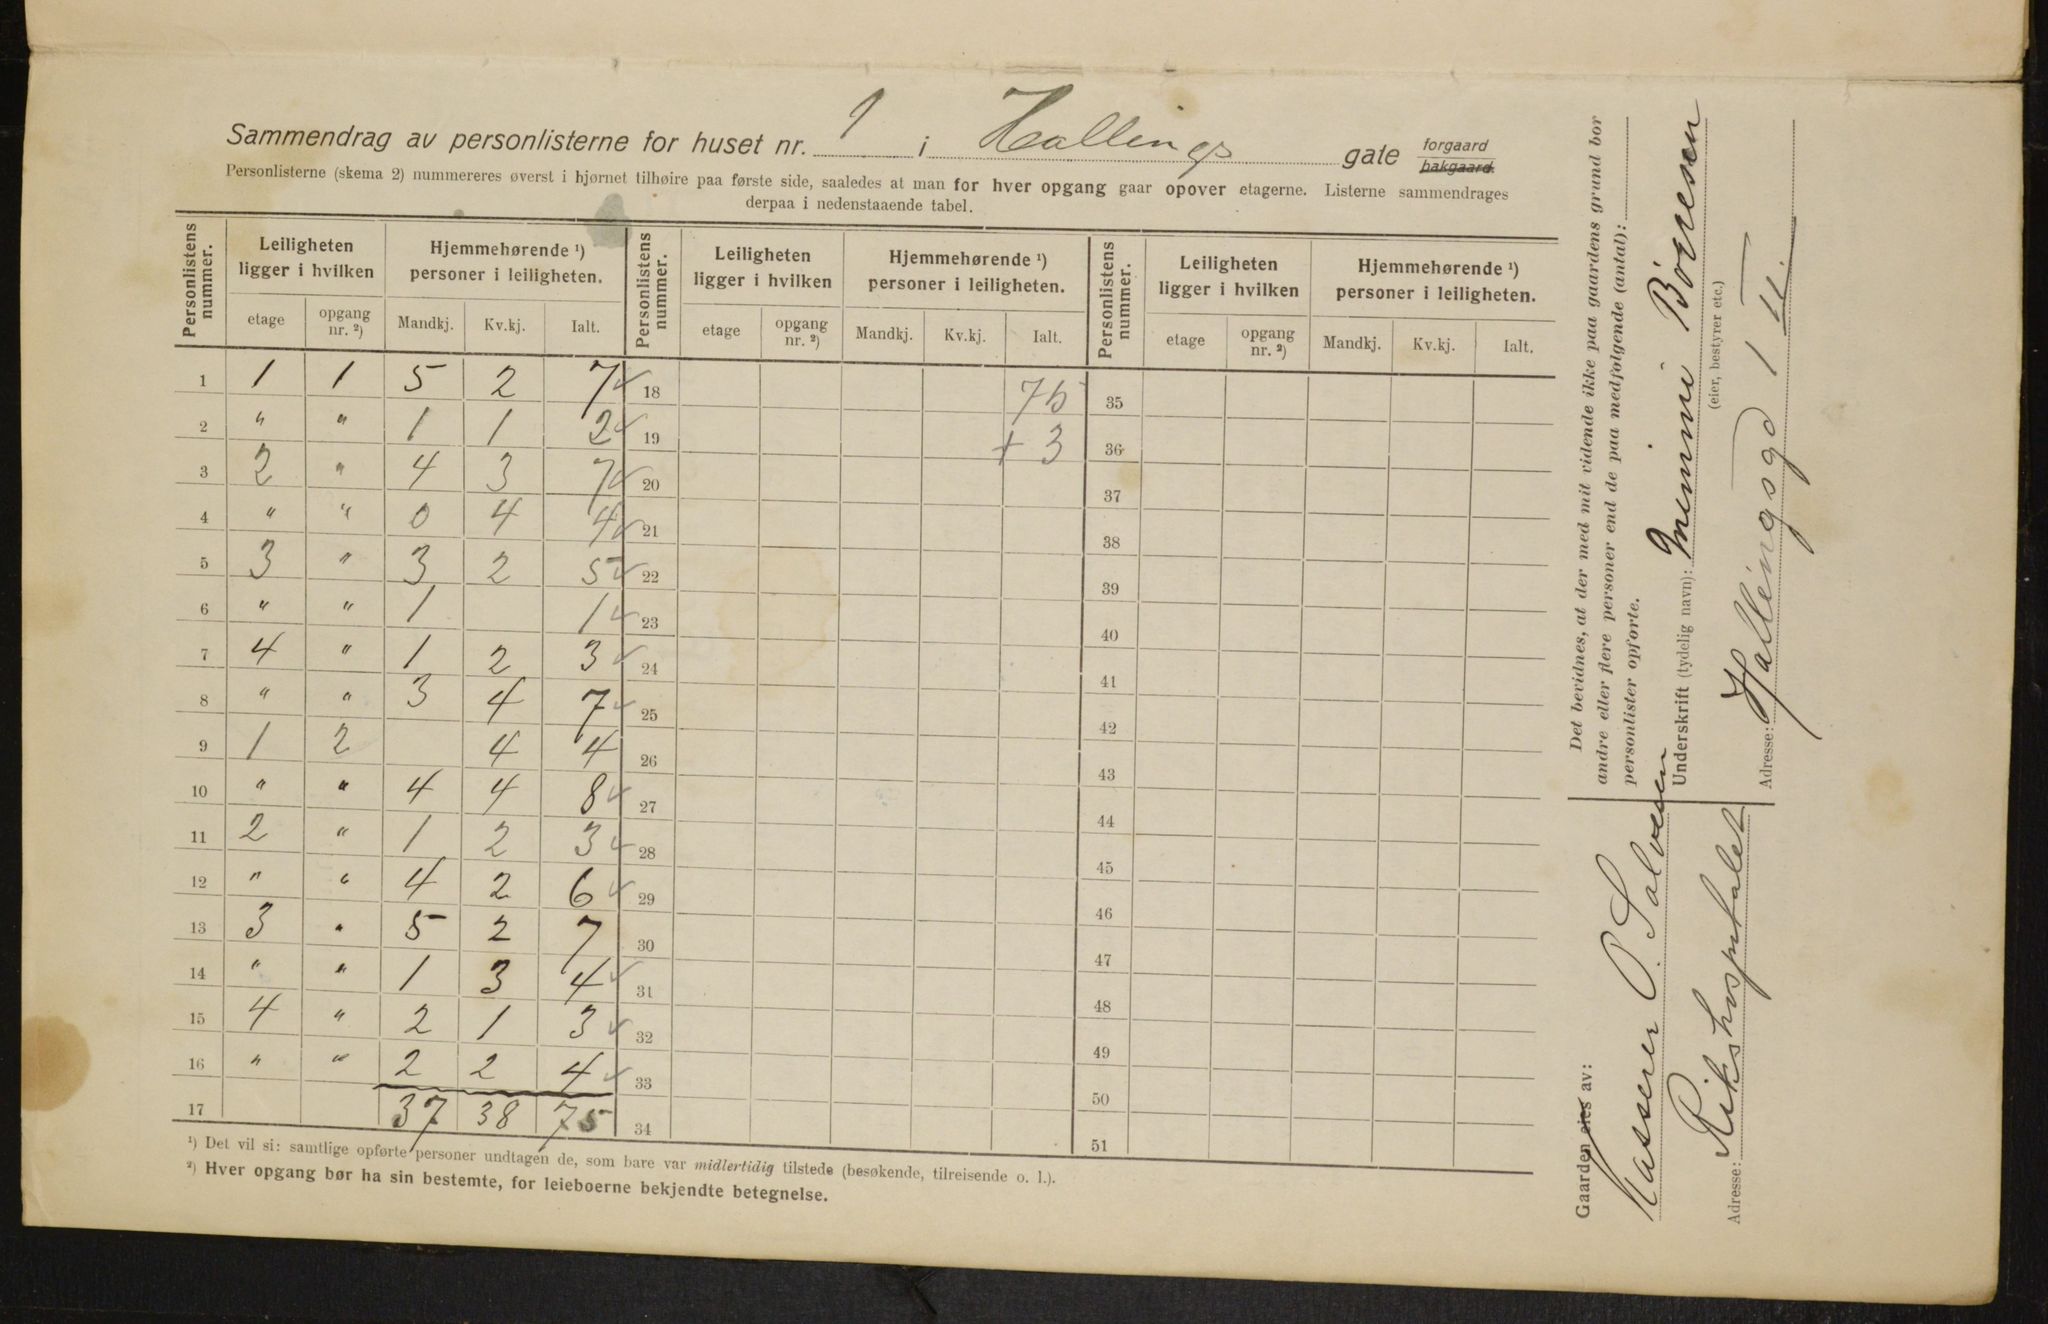 Sammendrag av personlisterne for huset nr. 1 i Hallings gate forgaard bakgaard.
Personlisterne (skema 2) nummereres øverst i hjørnet tilhøire paa første side, saaledes at man for hver opgang gaar opover etagerne. Listerne sammendrages
derpaa i nedenstaaende tabel.
Personlistens nummer. Leiligheten ligger i hvilken Hjemmehørende ¹) personer i leiligheten. Personlistens nummer. Leiligheten ligger i hvilken Hjemmehørende ¹) personer i leiligheten. Personlistens nummer. Leiligheten ligger i hvilken Hjemmehørende ¹) personer i leiligheten.
etage opgang nr. ²) Mandkj. Kv.kj. Ialt. etage opgang nr. ²) Mandkj. Kv.kj. Ialt. etage opgang nr. ²) Mandkj. Kv.kj. Ialt.
1 1 1 5 2 7 ✓ 18 75 35
2 " " 1 1 2 ✓ 19 + 3 36
3 2 " 4 3 7 ✓ 20 37
4 " " 0 4 4 ✓ 21 38
5 3 " 3 2 5 ✓ 22 39
6 " " 1 1 ✓ 23 40
7 4 " 1 2 3 ✓ 24 41
8 " " 3 4 7 ✓ 25 42
9 1 2 4 4 26 43
10 " " 4 4 8 ✓ 27 44
11 2 " 1 2 3 ✓ 28 45
12 " " 4 2 6 ✓ 29 46
13 3 " 5 2 7 30 47
14 " " 1 3 4 ✓ 31 48
15 4 " 2 1 3 ✓ 32 49
16 " " 2 2 4 ✓ 33 50
17 37 38 75 34 51
¹) Det vil si: samtlige opførte personer undtagen de, som bare var midlertidig tilstede (besøkende, tilreisende o. l.).
²) Hver opgang bør ha sin bestemte, for leieboerne bekjendte betegnelse.
Det bevidnes, at der med mit vidende ikke paa gaardens grund bor
andre eller flere personer end de paa medfølgende (antal):
personlister opførte.
Underskrift (tydelig navn): Minni Børresen
(eier, bestyrer etc.)
Adresse: Hallingsgd 1 III
Gaarden eies av:
Kasserer O. Salvesen
Adresse: Rikshospitalet